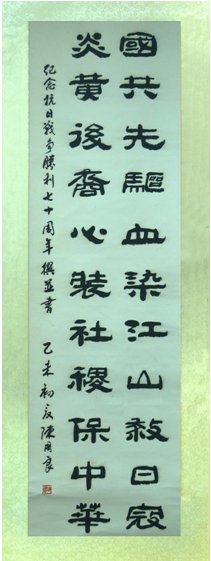 國共先驅血染江山殺日寇
炎黃後裔心裝社稷保中華
紀念抗日戰爭勝利七十周年 撰並書 乙未初夏 陳良